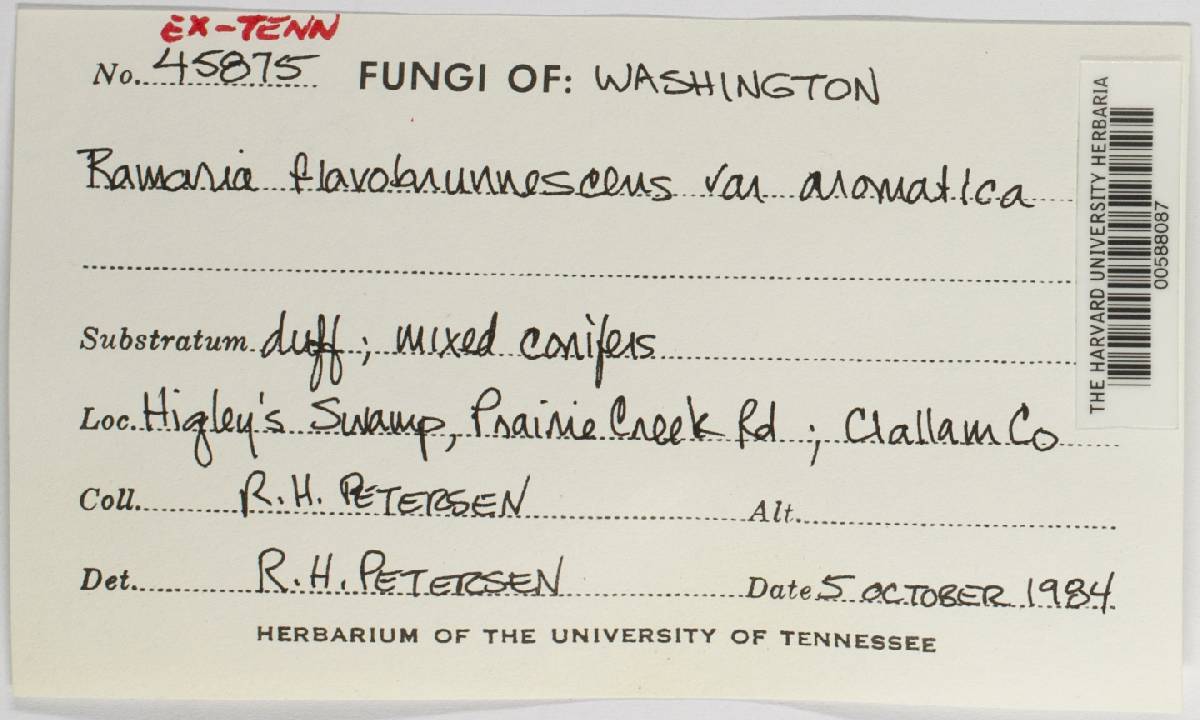 EX-TENN
No. 45875 FUNGI OF: WASHINGTON
Ramaria flavobrunnescens var aromatica
Substratum duff; mixed conifers
Loc. Higley's Swamp, Prairie Creek Rd; Clallam Co
Coll. R.H. PETERSEN Alt.
Det. R.H. PETERSEN Date 5 OCTOBER 1984
HERBARIUM OF THE UNIVERSITY OF TENNESSEE
THE HARVARD UNIVERSITY HERBARIA
00588087